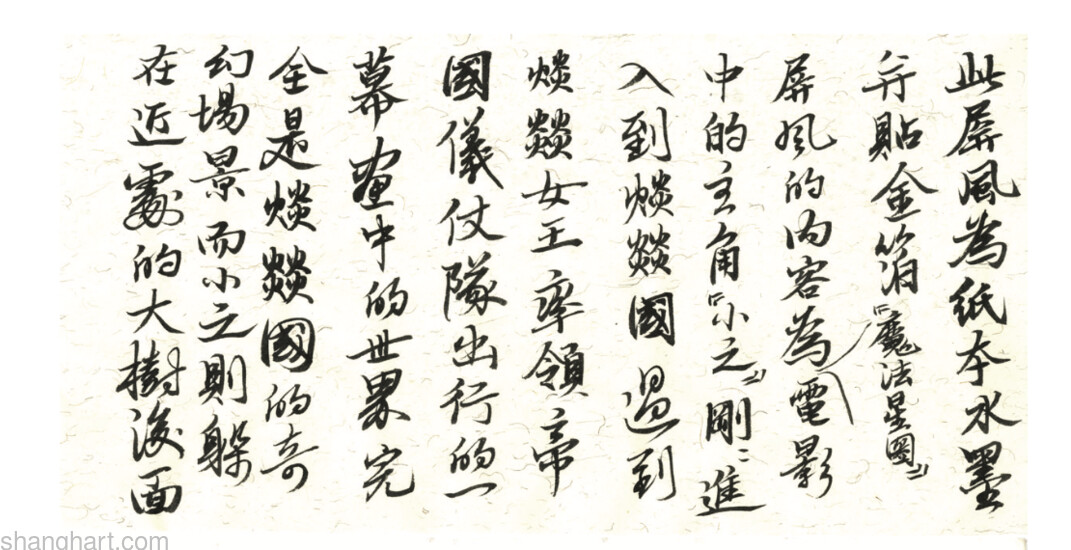 此屏風為紙本水墨
并貼金箔『魔法星圖』
屏风的内容為電影
中的主角『小之』剛〻進
入到焱燚國 遇到
焱燚女王率領帝
國儀仗隊出行的一
幕畫中的世界完
全是焱燚國的奇
幻場景而小之則躲
在近處的大樹後面
shanghart.com